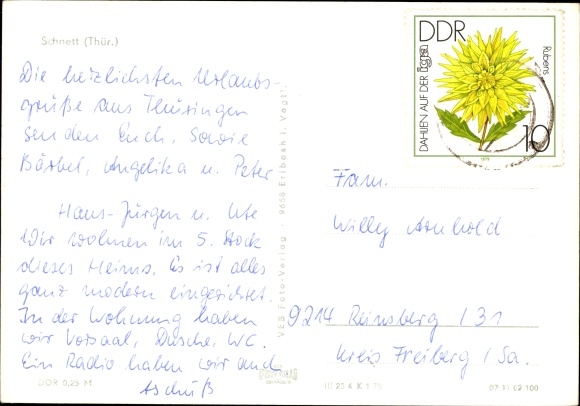 Schnett (Thür.)
Die herzlichsten Urlaubs-
grüße aus Thüringen
senden Euch, sowie
Bärbel, Angelika u. Peter
Hans-Jürgen u. Ute
Wir wohnen im 5. Stock
dieses Heims. Es ist alles
ganz modern eingerichtet.
In der Wohnung haben
wir Vorsaal, Dusche, WC.
Ein Radio haben wir auch
Tschüß
DDR 0,25 M
VEB Foto-Verlag · 9659 Erlbach i. Vogtl.
DDR
DAHLIEN AUF DER
Rubens
10
1979
Fam.
Willy Arnhold
9214 Reinsberg / 31
Kreis Freiberg / Sa.
III 23 4 K 1 75
07 11 02 100